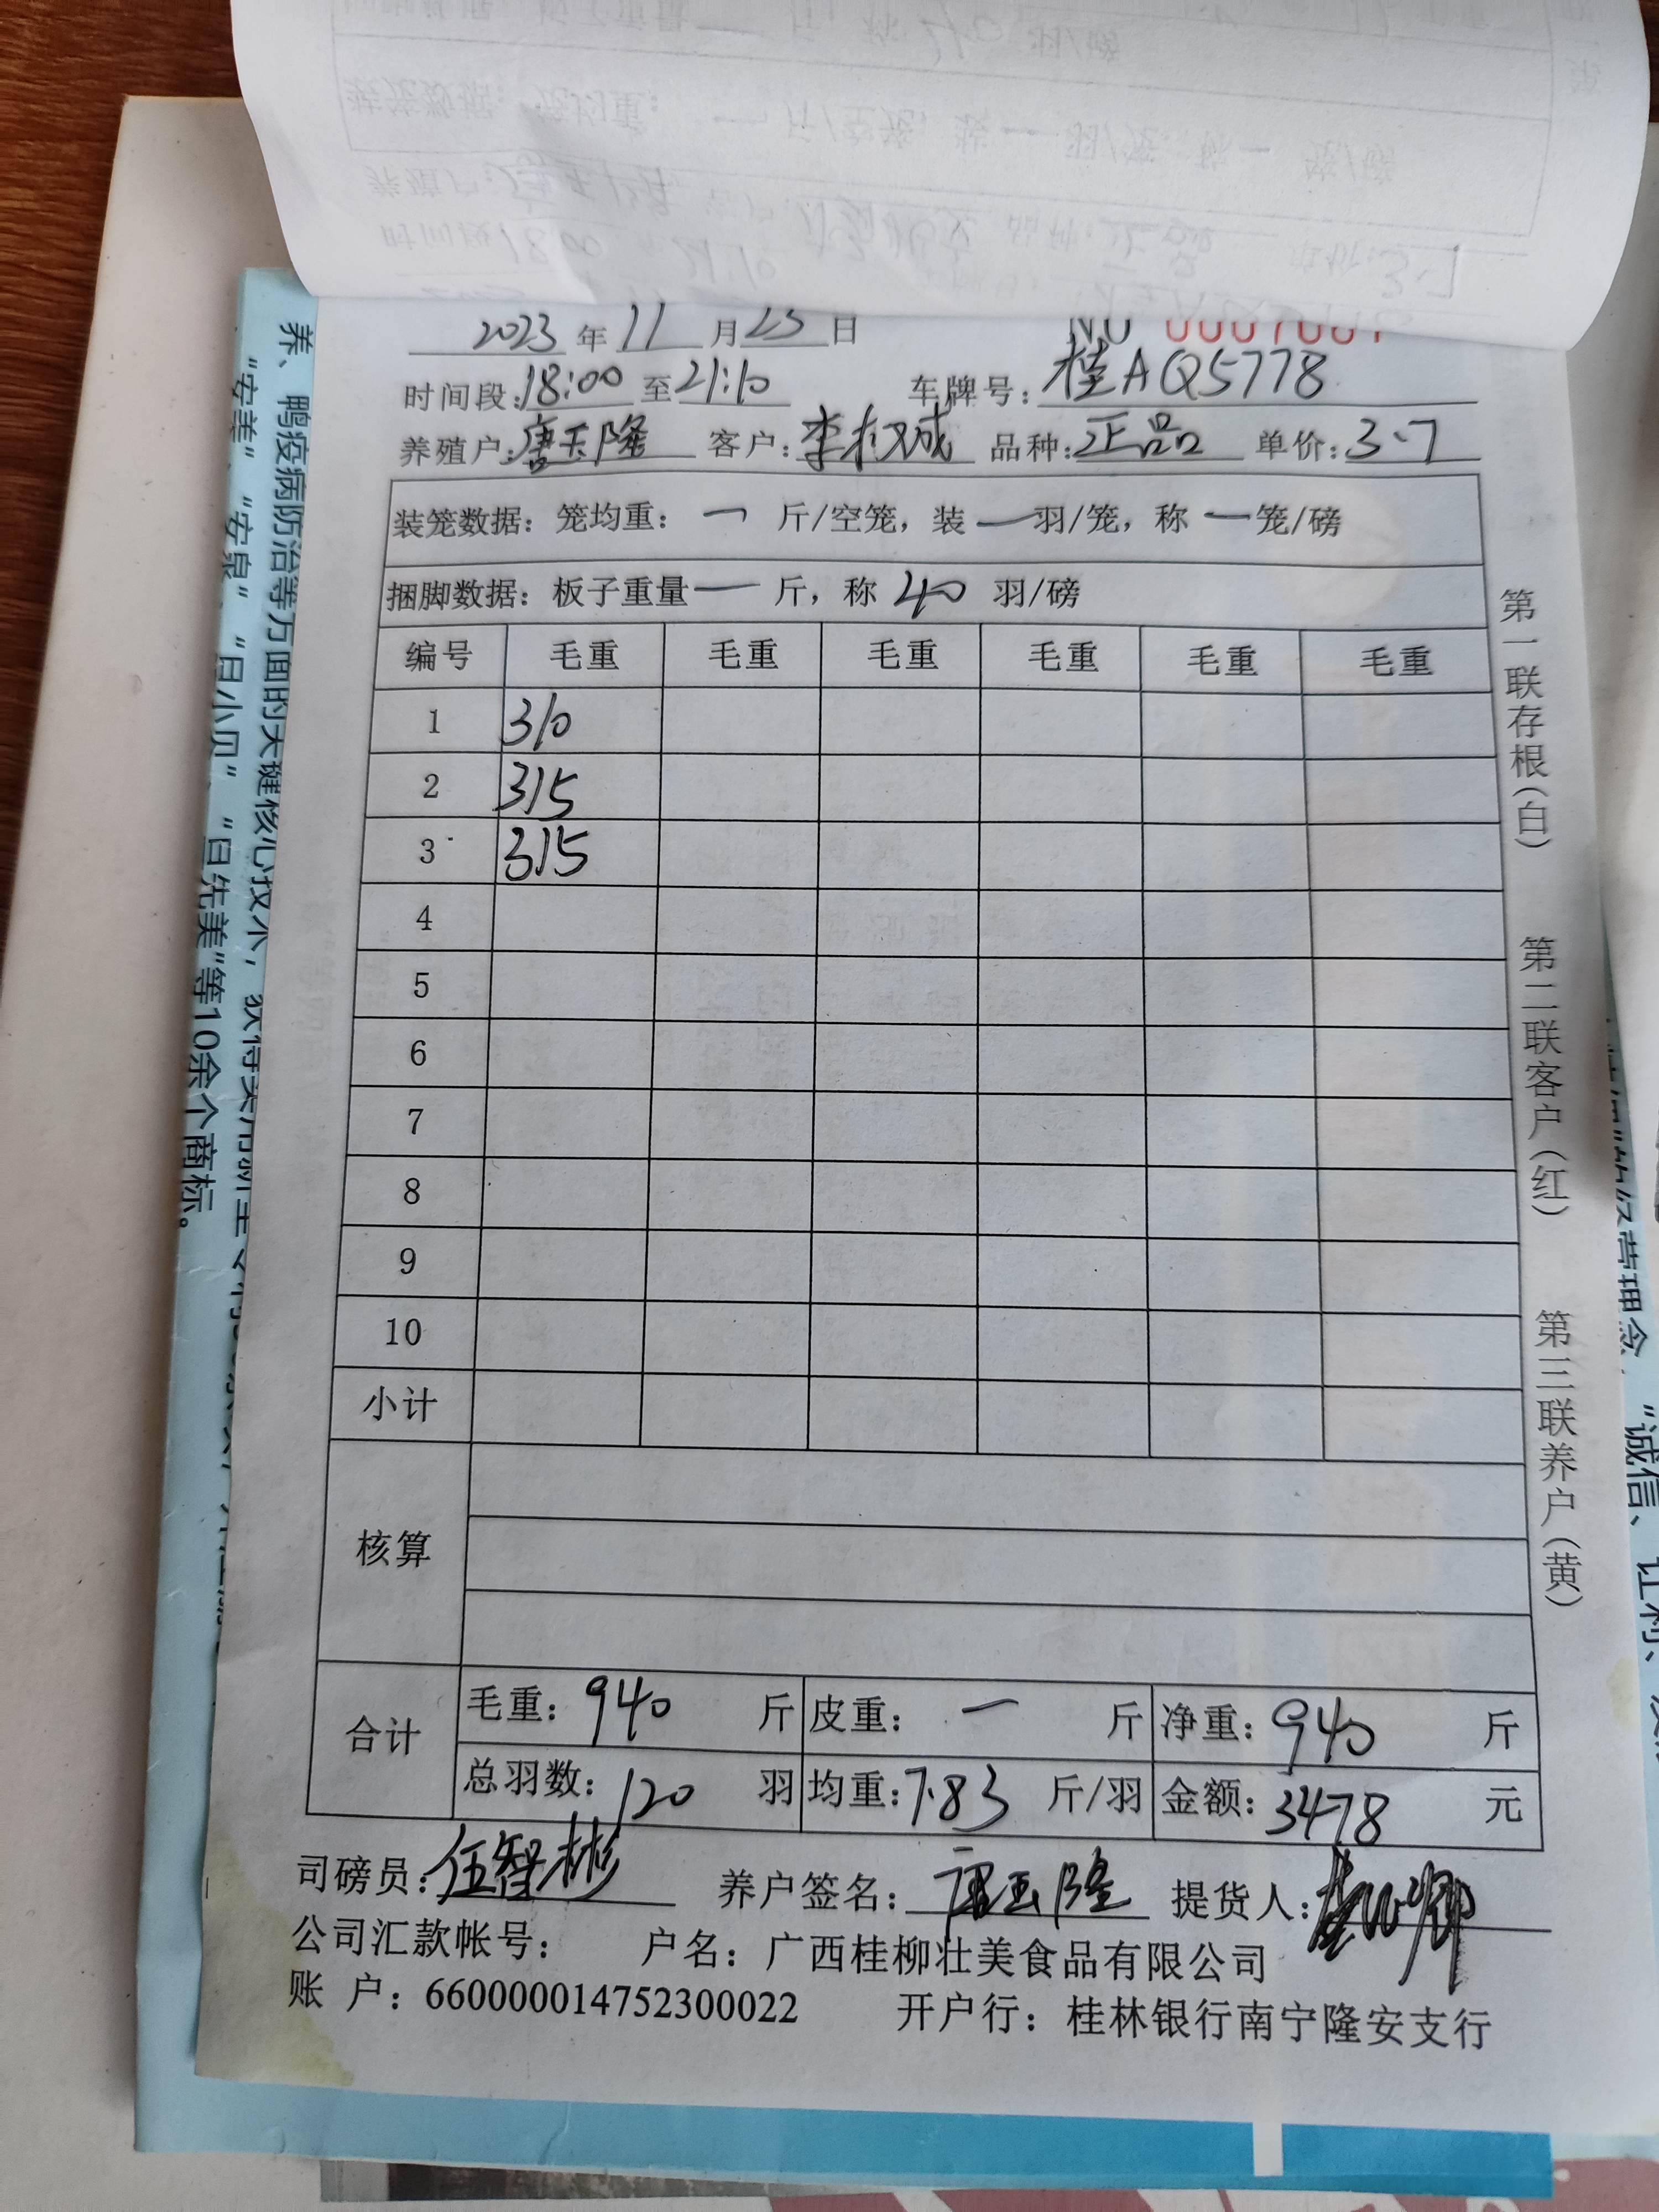 2023年11月23日
时间段:18:00至21:10 车牌号:桂AQ5778
养殖户:唐玉隆 客户:李权成 品种:正品 单价:3.7
装笼数据:笼均重:一斤/空笼,装一羽/笼,称一笼/磅
捆脚数据:板子重量一斤,称40羽/磅
编号 毛重 毛重 毛重 毛重 毛重 毛重
1 310
2 315
3 315
4
5
6
7
8
9
10
小计
核算
合计
毛重:940斤 皮重:一斤 净重:940斤
总羽数:120羽 均重:7.83斤/羽 金额:3478元
司磅员:伍智彬 养户签名:唐玉隆 提货人:
公司汇款帐号: 户名:广西桂柳壮美食品有限公司
账户:660000014752300022 开户行:桂林银行南宁隆安支行
第一联存根(白) 第二联客户(红) 第三联养户(黄)
养、鸭疫病防治等方面的关键核心技术,获得
"安美"、"安泉"、"白小贝"、"白先美"等10余个商标。
"诚信、让利、